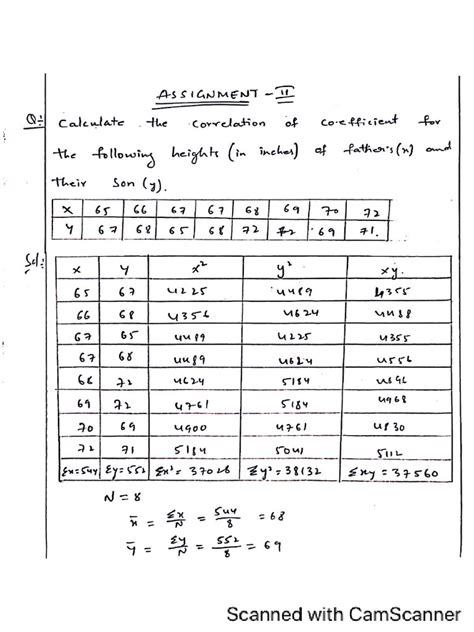 ASSIGNMENT - II
Q:- Calculate the correlation of co.efficient for
the following heights (in inches) of father's(x) and
their Son (y).
X 65 66 67 67 68 69 70 72
Y 67 68 65 68 72 72 69 71.
Sol:-
x y x² y² xy.
65 67 4225 4489 4355
66 68 4356 4624 4488
67 65 4489 4225 4355
67 68 4489 4624 4556
68 72 4624 5184 4896
69 72 4761 5184 4968
70 69 4900 4761 4830
72 71 5184 5041 5112
Σx=544 Σy=552 Σx²=37028 Σy²=38132 Σxy=37560
N = 8
x̄ = Σx/N = 544/8 = 68
ȳ = Σy/N = 552/8 = 69
Scanned with CamScanner